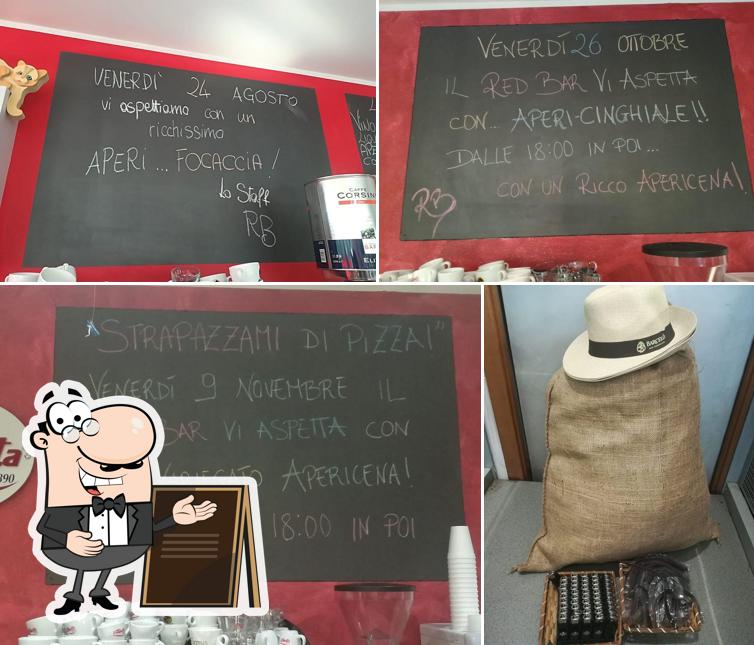 VENERDÌ 24 AGOSTO
vi aspettiamo con un
ricchissimo
APERI ... FOCACCIA!
Lo Staff
RB
CAFFÈ
CORSINI
VENERDÍ 26 OTTOBRE
IL RED BAR VI ASPETTA
CON... APERI-CINGHIALE!!
DALLE 18:00 IN POI...
CON UN RICCO APERICENA!
RB
"STRAPAZZAMI DI PIZZA!"
VENERDÌ 9 NOVEMBRE IL
BAR VI ASPETTA CON
APERICENA!
18:00 IN POI
BARCELÓ